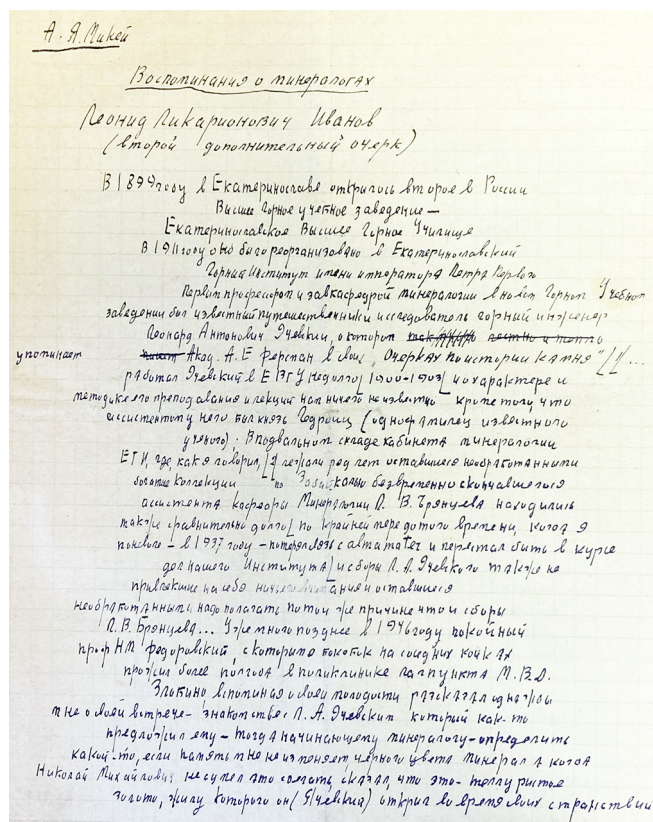 А. Я. Микей
Воспоминания о минералогах
Леонид Ликарионович Иванов
(второй дополнительный очерк)
В 1899 году в Екатеринославе открылось второе в России
Высшее Горное учебное заведение —
Екатеринославское Высшее Горное Училище
В 1911 году оно было реорганизовано в Екатеринославский
Горный Институт имени императора Петра Первого
Первым профессором и завкафедрой минералогии в новом Горном Учебном
заведении был известный путешественник и исследователь горный инженер
Леонард Антонович Ячевский, о котором
упоминает Акад. А. Е. Ферсман в своих „Очерках по истории камня"
работал Ячевский в ЕВГУ недолго /1900-1903/ и о характере и
методике его преподавания и лекций нам ничего неизвестно кроме того, что
ассистентом у него был князь Гедройц (однофамилец известного
ученого). В подвальном складе кабинета минералогии
ЕГИ, где, как я говорил, лежали ряд лет оставшиеся необработанными
богатые коллекции по Забайкалью безвременно скончавшегося
ассистента кафедры Минералогии Л. В. Брянцева находились
также сравнительно долго по крайней мере до того времени, когда я
поневоле – в 1937 году – потерял связь с alma mater и перестал быть в курсе
дел нашего Института и сборы Л. А. Ячевского также не
привлекшие на себя ничьего внимания и оставшиеся
необработанными надо полагать по той же причине что и сборы
Л. В. Брянцева... Уже много позднее в 1946 году покойный
проф НМ Федоровский, с которым бок о бок на соседних койках
прожил более полгода в поликлинике лагпункта М. В. Д.
Злобино вспоминая о своей молодости рассказал однажды
мне о своей встрече- знакомстве с Л. А. Ячевским который как-то
предложил ему – тогда начинающему минералогу – определить
какой-то, если память мне не изменяет, черного цвета минерал а когда
Николай Михайлович не сумел это сделать, сказал, что это- теллуристое
золото, жилу которого он (Ячевский) открыл во время своих странствий